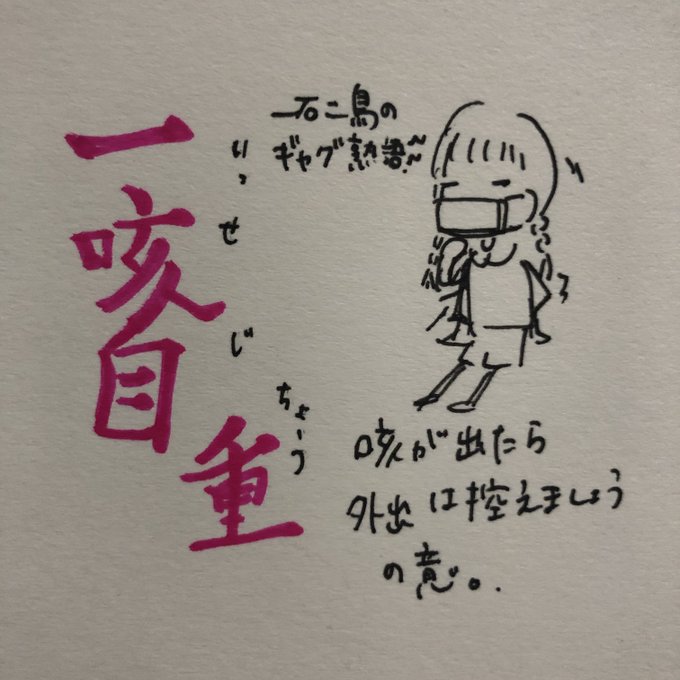 一石二鳥の
ギャグ熟語〜
一咳自重
いっせじちょう
咳が出たら
外出は控えましょう
の意。